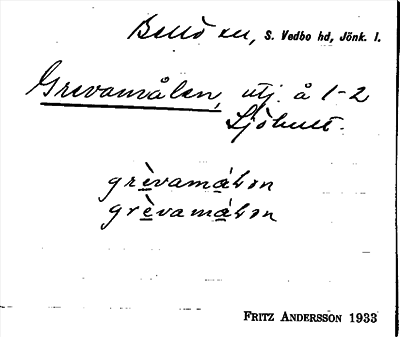 Bellö sn, S. Vedbo hd, Jönk. l.
Grevamålen, utj. å 1-2
Sjöhult.
grèvamå̀lən
grèvamå̀lən
FRITZ ANDERSSON 1933